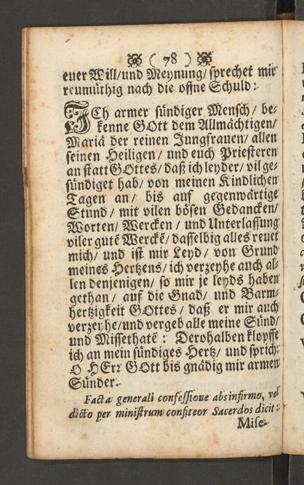 ( 78 )
euer Will / und Meynung / sprechet mir
reumüthig nach die offne Schuld:
ICh armer sündiger Mensch / be-
kenne GOtt dem Allmächtigen /
Mariä der reinen Jungfrauen / allen
seinen Heiligen / und euch Priesteren
an statt GOttes / daß ich leyder / vil ge-
sündiget hab / von meinen Kindlichen
Tagen an / bis auf gegenwärtige
Stund / mit vilen bösen Gedancken /
Worten / Wercken / und Unterlassung
viler gutē Werckē / dasselbig alles reuet
mich / und ist mir Leyd / von Grund
meines Hertzens / ich verzeyhe auch al-
len denjenigen / so mir je leyds haben
gethan / auf die Gnad / und Barm-
hertzigkeit GOttes / daß er mir auch
verzeyhe / und vergeb alle meine Sünd /
und Missethatē : Derohalben klopffe
ich an mein sündiges Hertz / und sprich:
O HErr GOtt bis gnädig mir armen
Sünder.
Facta generali confessione absinfirmo, vel
dicto per ministrum confiteor Sacerdos dicit:
Mise-